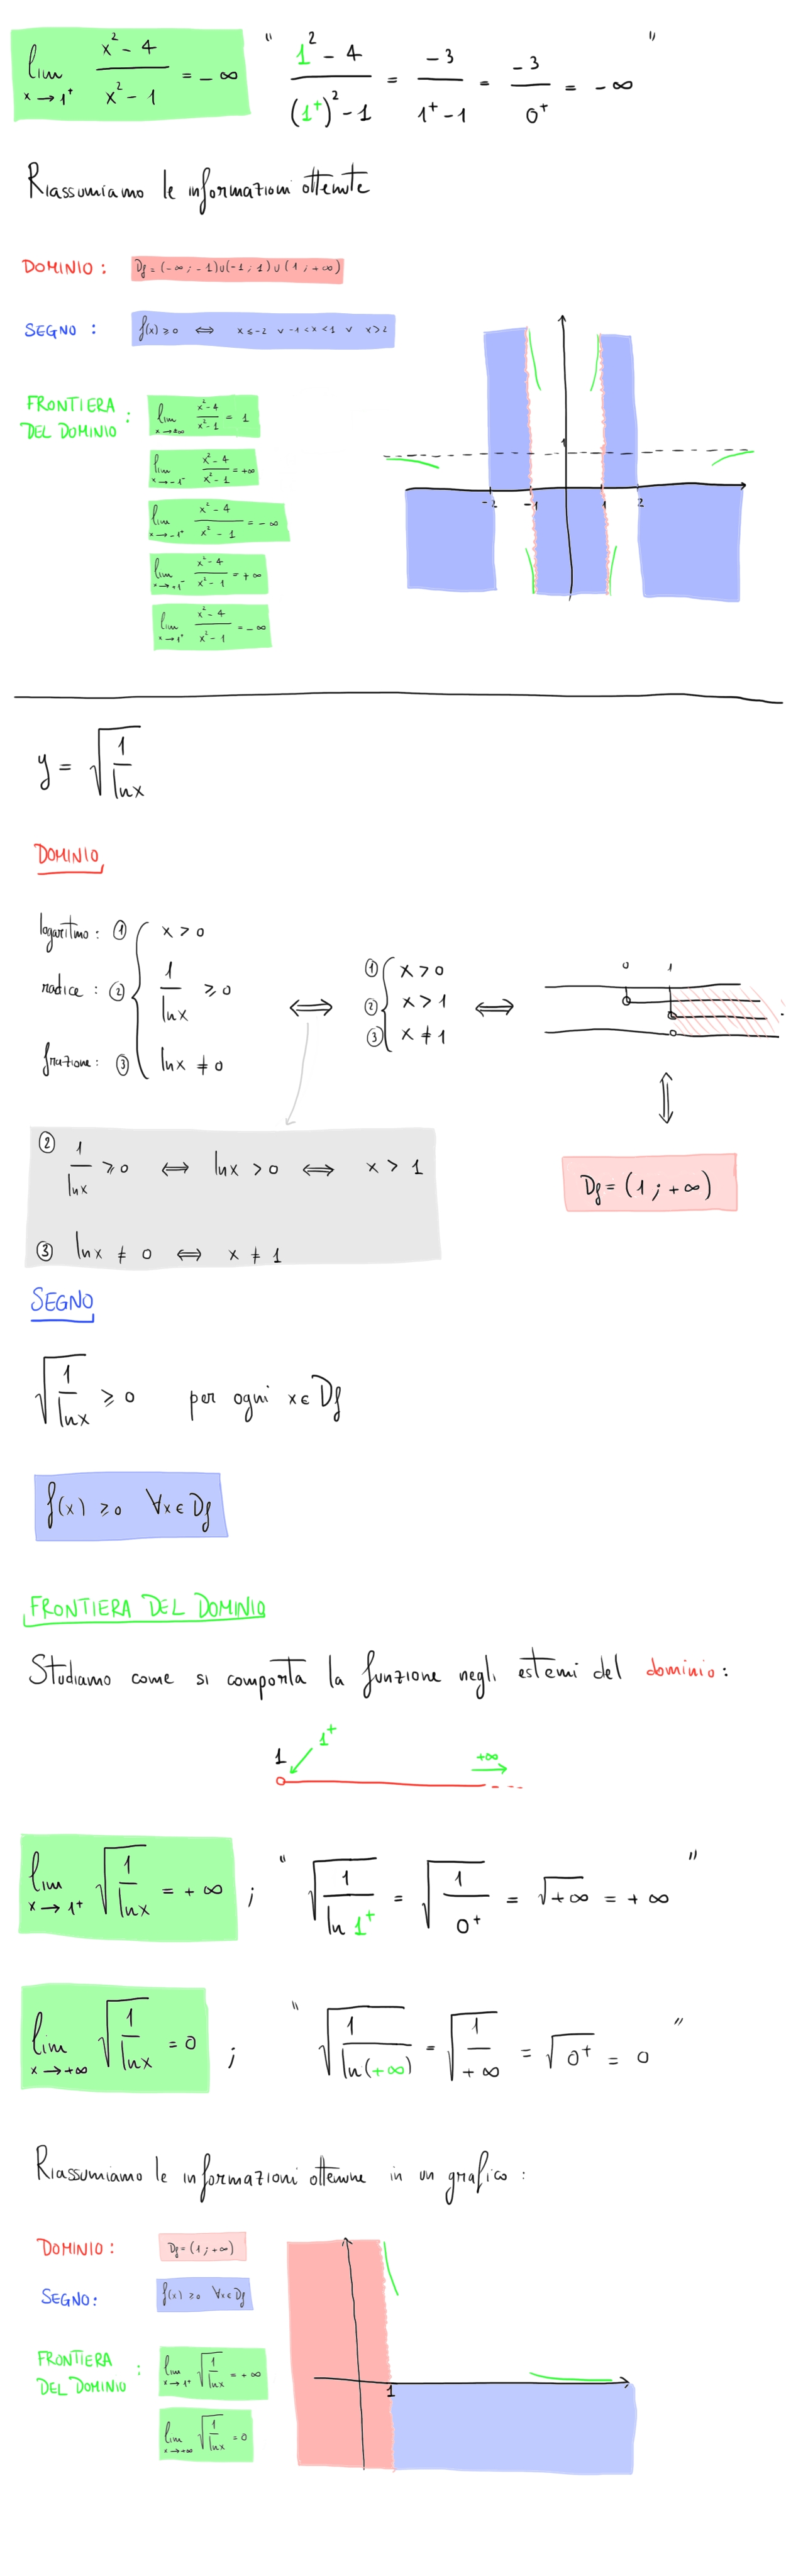 lim x→1⁺ (x² - 4)/(x² - 1) = -∞ " (1² - 4)/((1⁺)² - 1) = -3/(1⁺ - 1) = -3/0⁺ = -∞ "
Riassumiamo le informazioni ottenute
DOMINIO : Df = (-∞ ; -1)∪(-1 ; 1)∪(1 ; +∞)
SEGNO : f(x) ≥ 0 ⟺ x ≤ -2 ∨ -1 < x < 1 ∨ x > 2
FRONTIERA DEL DOMINIO :
lim x→±∞ (x²-4)/(x²-1) = 1
lim x→-1⁻ (x²-4)/(x²-1) = +∞
lim x→-1⁺ (x²-4)/(x²-1) = -∞
lim x→+1⁻ (x²-4)/(x²-1) = +∞
lim x→1⁺ (x²-4)/(x²-1) = -∞
1
-2 -1 1 2
y = √(1/lnx)
DOMINIO
logaritmo : ① x > 0
radice : ② 1/lnx ≥ 0
frazione : ③ lnx ≠ 0
⟺
① x > 0
② x > 1
③ x ≠ 1
⟺
0 1
⇕
② 1/lnx ≥ 0 ⟺ lnx > 0 ⟺ x > 1
Df = (1 ; +∞)
③ lnx ≠ 0 ⟺ x ≠ 1
SEGNO
√(1/lnx) ≥ 0 per ogni x ∈ Df
f(x) ≥ 0 ∀x ∈ Df
FRONTIERA DEL DOMINIO
Studiamo come si comporta la funzione negli estemi del dominio :
1 1⁺ +∞
lim x→1⁺ √(1/lnx) = +∞ ; " √(1/ln 1⁺) = √(1/0⁺) = √+∞ = +∞ "
lim x→+∞ √(1/lnx) = 0 ; " √(1/ln(+∞)) = √(1/+∞) = √0⁺ = 0 "
Riassumiamo le informazioni ottenune in un grafico :
DOMINIO : Df = (1 ; +∞)
SEGNO : f(x) ≥ 0 ∀x ∈ Df
FRONTIERA DEL DOMINIO :
lim x→1⁺ √(1/lnx) = +∞
lim x→+∞ √(1/lnx) = 0
1